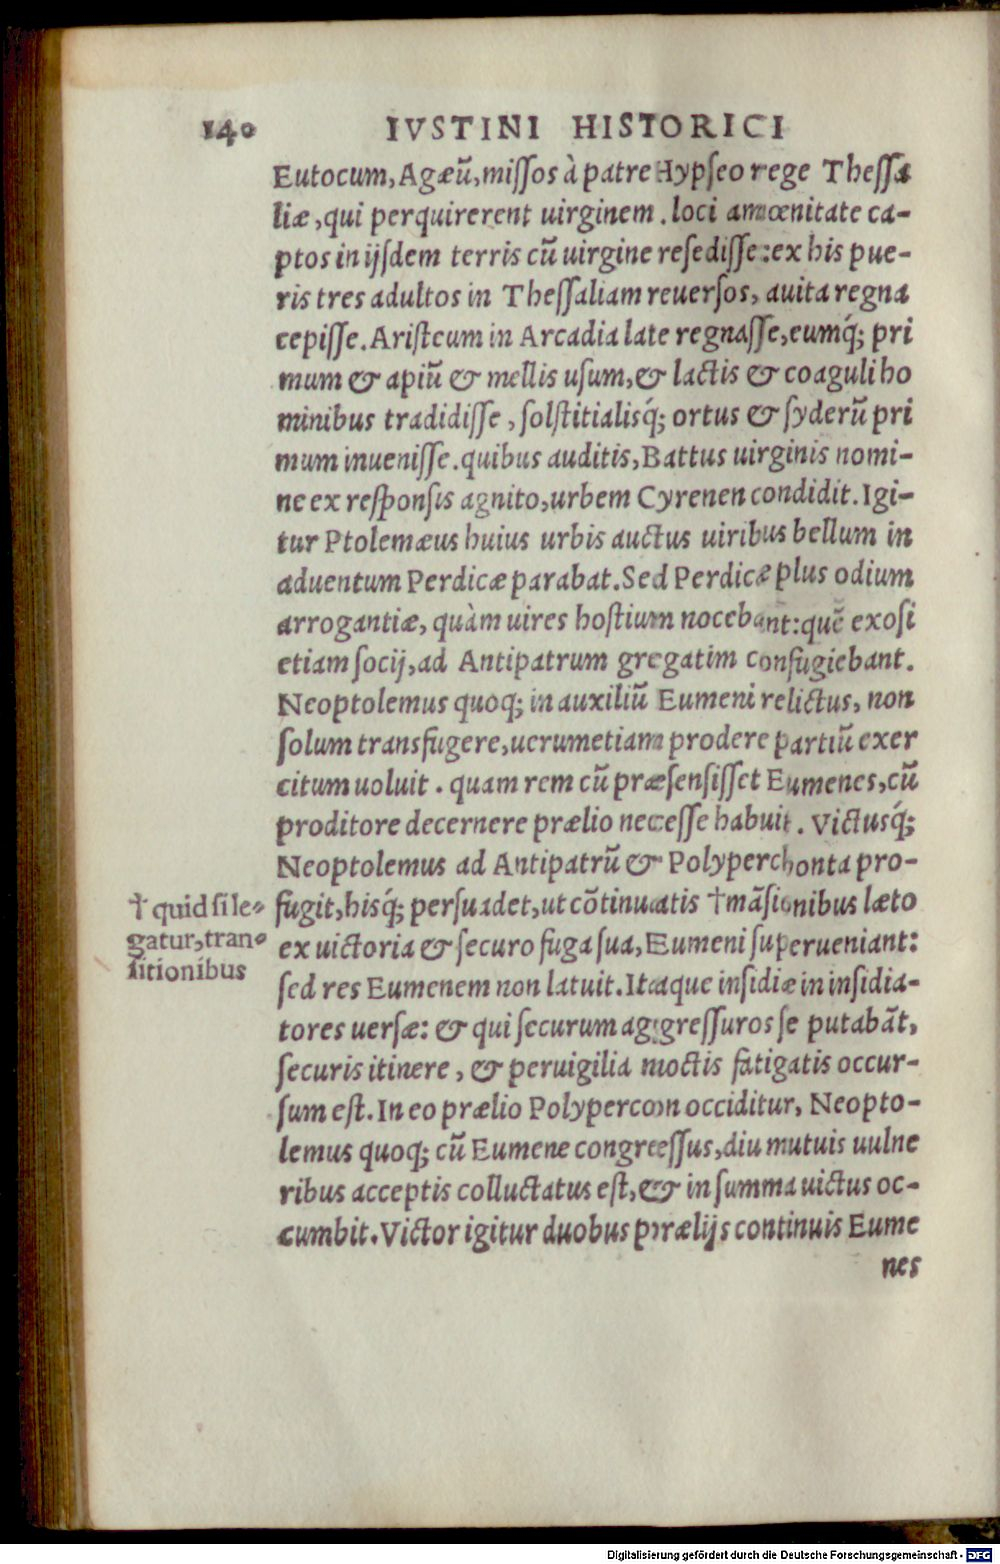 140 IVSTINI HISTORICI
Eutocum, Agæū, missos à patre Hypseo rege Thessa
liæ, qui perquirerent uirginem. loci amœnitate ca-
ptos in ijsdem terris cū uirgine resedisse: ex his pue-
ris tres adultos in Thessaliam reuersos, auita regna
cepisse. Aristeum in Arcadia late regnasse, eumq́; pri
mum & apiū & mellis usum, & lactis & coaguli ho
minibus tradidisse, solstitialisq́; ortus & syderū pri
mum inuenisse. quibus auditis, Battus uirginis nomi-
ne ex responsis agnito, urbem Cyrenen condidit. Igi-
tur Ptolemæus huius urbis auctus uiribus bellum in
aduentum Perdicæ parabat. Sed Perdicæ plus odium
arrogantiæ, quàm uires hostium nocebant: quē exosi
etiam socij, ad Antipatrum gregatim confugiebant.
Neoptolemus quoq; in auxiliū Eumeni relictus, non
solum transfugere, uerumetiam prodere partiū exer
citum uoluit. quam rem cū præsensisset Eumenes, cū
proditore decernere prælio necesse habuit. Victusq́;
Neoptolemus ad Antipatrū & Polyperchonta pro-
fugit, hisq́; persuadet, ut cōtinuatis †māsionibus læto
ex uictoria & securo fuga sua, Eumeni superueniant:
sed res Eumenem non latuit. Itaque insidiæ in insidia-
tores uersæ: & qui securum aggressuros se putabāt,
securis itinere, & peruigilia noctis fatigatis occur-
sum est. In eo prælio Polypercon occiditur, Neopto-
lemus quoq; cū Eumene congressus, diu mutuis uulne
ribus acceptis colluctatus est, & in summa uictus oc-
cumbit. Victor igitur duobus prælijs continuis Eume
nes
† quid si le-
gatur, tran-
sitionibus
Digitalisierung gefördert durch die Deutsche Forschungsgemeinschaft - DFG